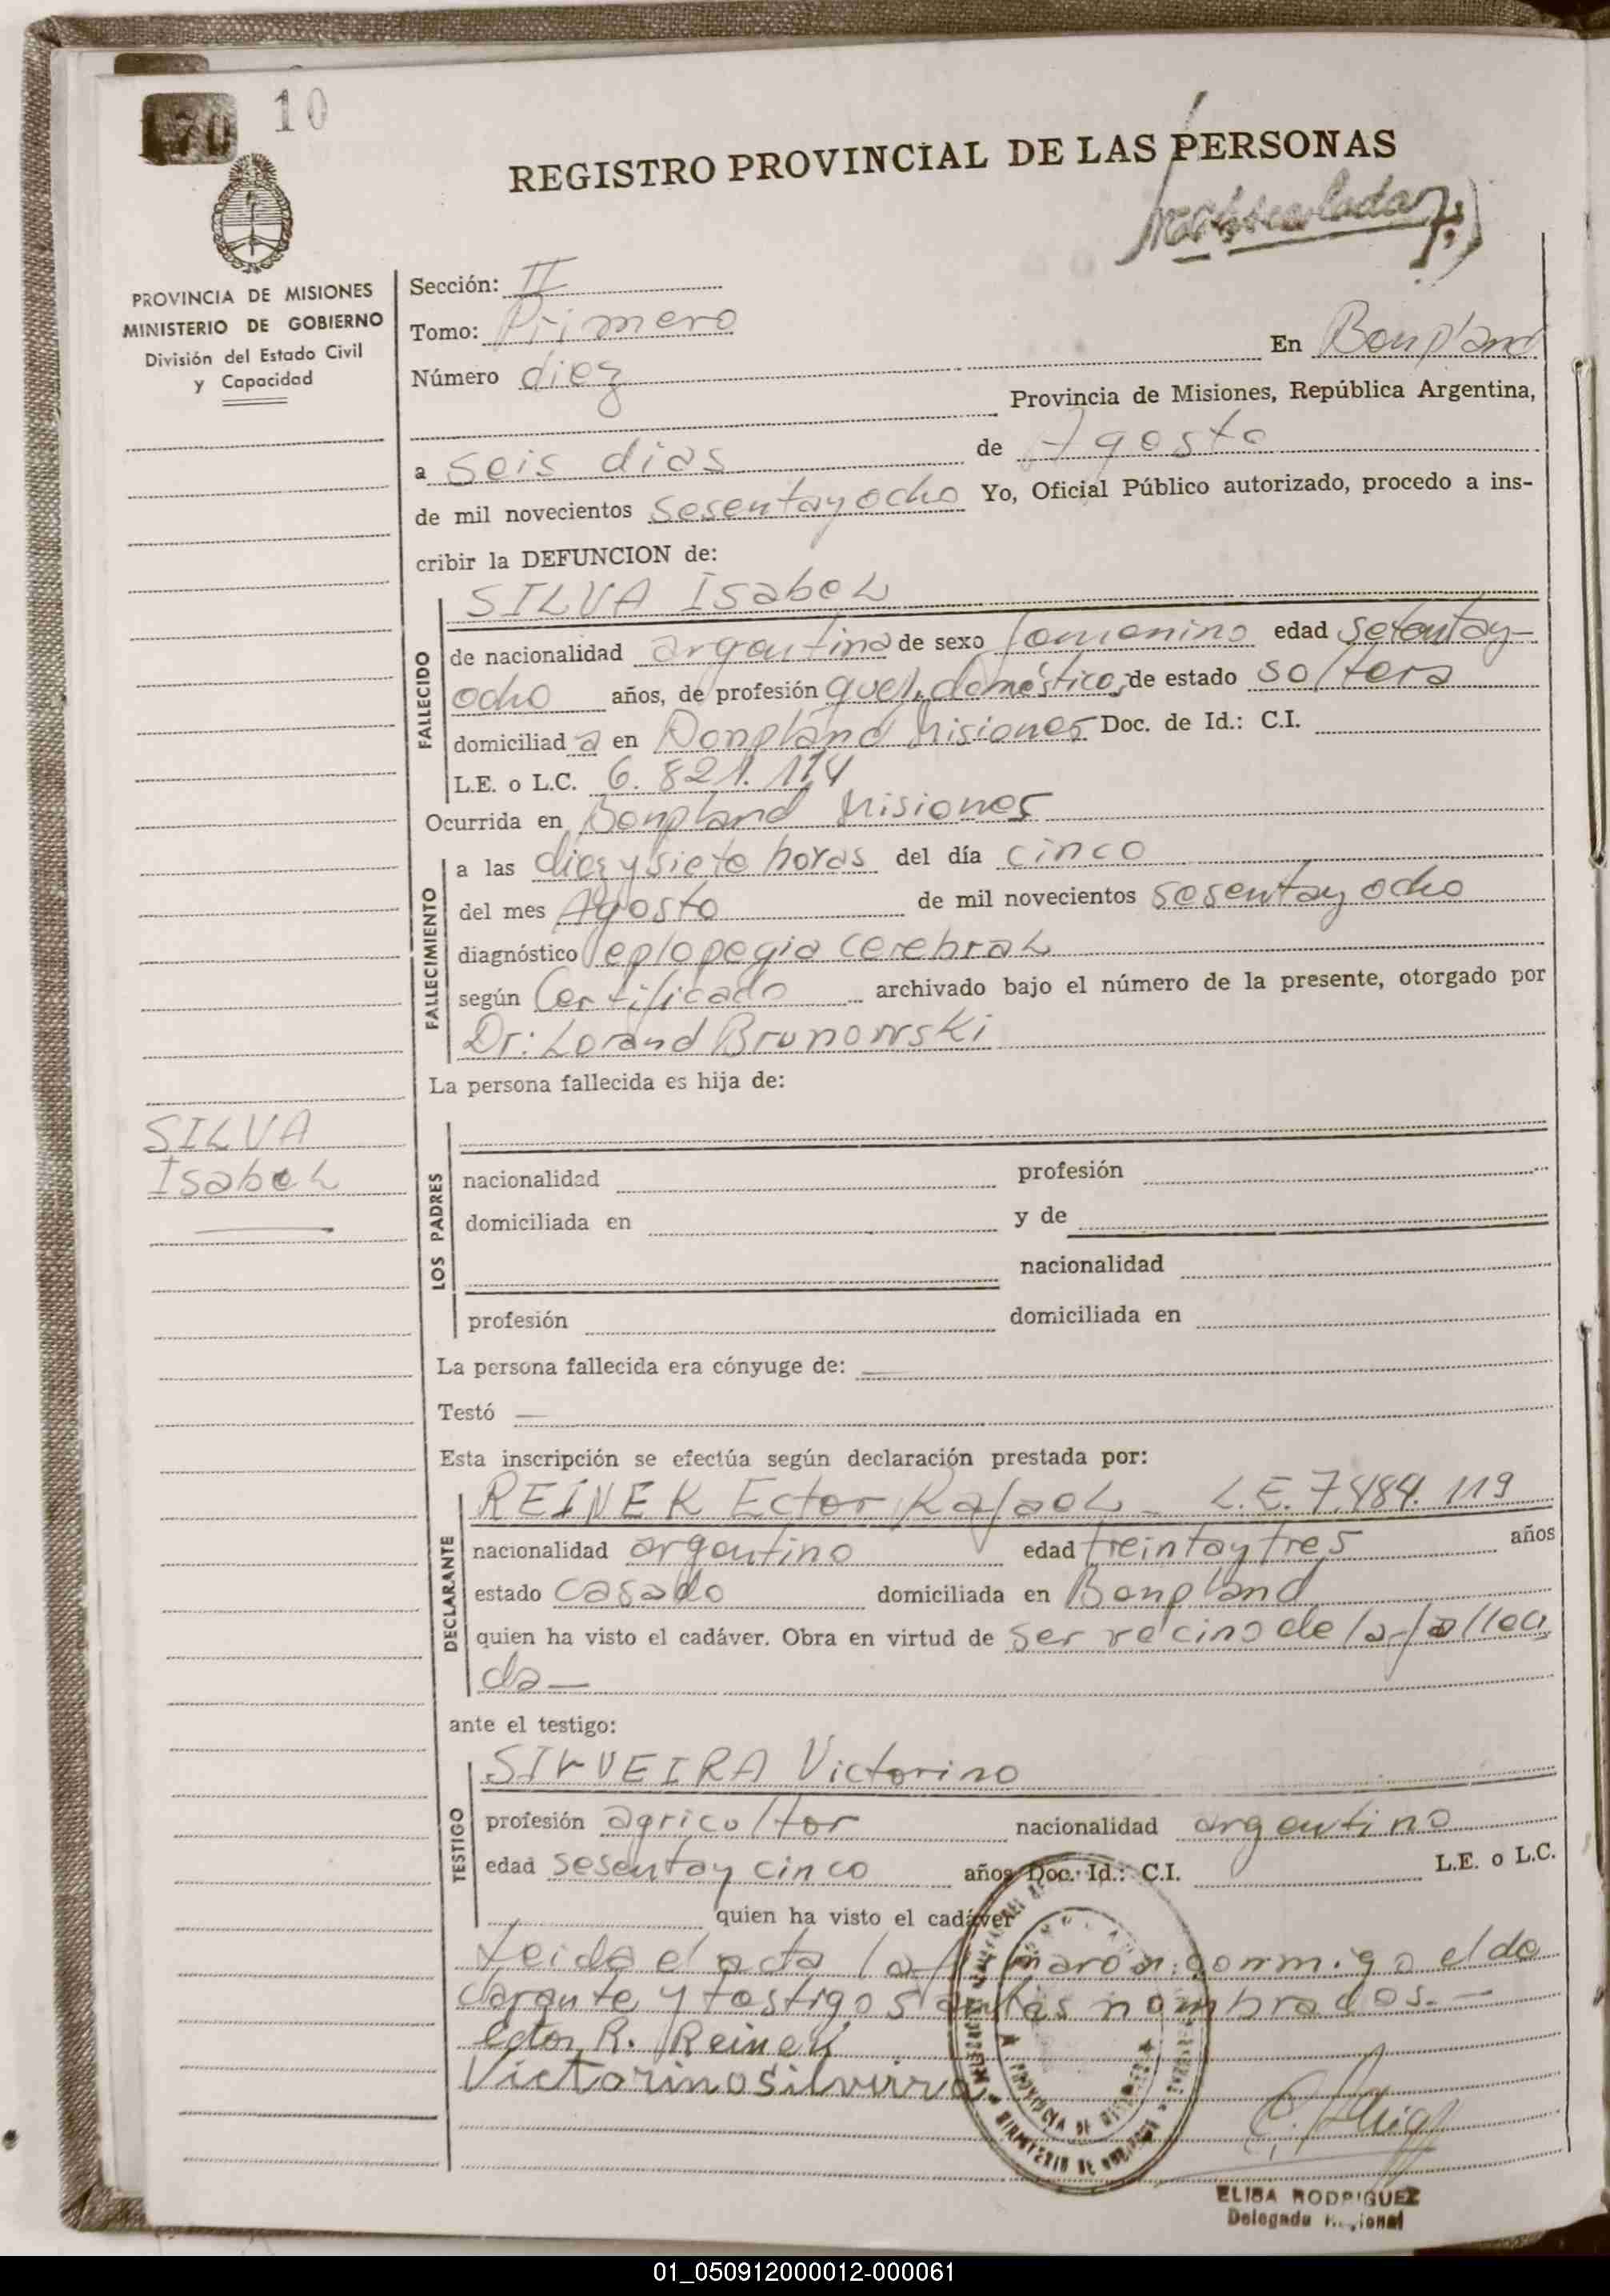 70 10
REGISTRO PROVINCIAL DE LAS PERSONAS
PROVINCIA DE MISIONES
MINISTERIO DE GOBIERNO
División del Estado Civil
y Capacidad
Sección: II
Tomo: Primero
En Bonpland
Número diez
Provincia de Misiones, República Argentina,
a seis dias de Agosto
de mil novecientos sesentayocho Yo, Oficial Público autorizado, procedo a ins-
cribir la DEFUNCION de:
FALLECIDO
SILVA IsabeL
de nacionalidad argentina de sexo femenino edad setentay-
ocho años, de profesión queh. domésticos de estado soltera
domiciliad a en Bonpland Misiones Doc. de Id.: C.I.
L.E. o L.C. 6.821.114
Ocurrida en Bonpland Misiones
FALLECIMIENTO
a las diez y siete horas del día cinco
del mes Agosto de mil novecientos sesentay ocho
diagnóstico cerebraL
según Certificado archivado bajo el número de la presente, otorgado por
Dr: Lorand Brunowski
La persona fallecida es hija de:
SILVA
IsabeL
LOS PADRES
nacionalidad profesión
domiciliada en y de
nacionalidad
profesión domiciliada en
La persona fallecida era cónyuge de: —
Testó —
Esta inscripción se efectúa según declaración prestada por:
DECLARANTE
REINEK Ector RafaeL - L.E. 7.484.119
nacionalidad argentino edad treintaytres años
estado casado domiciliada en Bonpland
quien ha visto el cadáver. Obra en virtud de ser vecino de la falleci
da —
ante el testigo:
TESTIGO
SILVEIRA Victorino
profesión agricultor nacionalidad argentino
edad sesentay cinco años Doc. Id.: C.I. L.E. o L.C.
quien ha visto el cadáver
Leida el acta la firmaron conmigo el de
clarante y testigos antes nombrados. —
Ector R. Reinek
Victorino Silveira
PROVINCIA DE MISIONES
MINISTERIO DE GOBIERNO
ELISA RODRIGUEZ
Delegada Regional
01_050912000012-000061